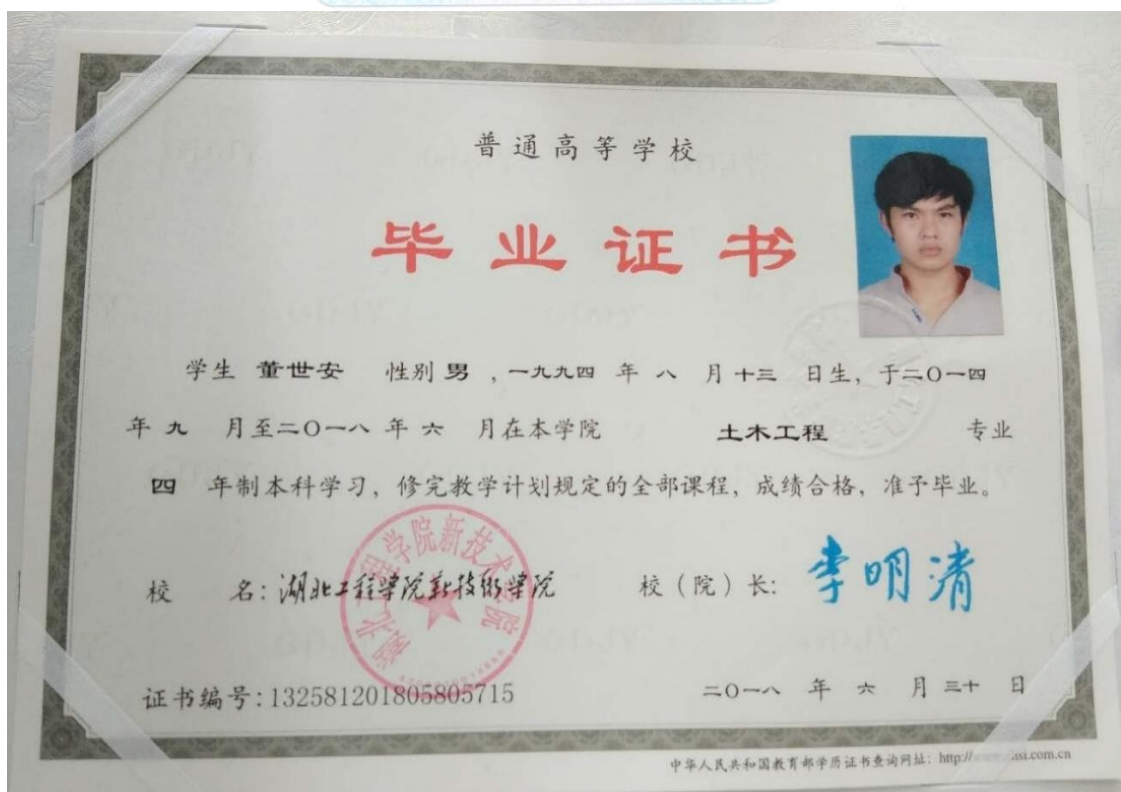 普通高等学校
毕业证书
学生 董世安 性别 男 ,一九九四 年 八 月 十三 日生,于二〇一四
年 九 月至二〇一八 年 六 月在本学院 土木工程 专业
四 年制本科学习,修完教学计划规定的全部课程,成绩合格,准予毕业。
校 名:湖北工程学院新技術学院 校(院)长:李明清
湖北工程学院新技术学院
证书编号:132581201805805715 二〇一八 年 六 月 三十 日
中华人民共和国教育部学历证书查询网址:http://